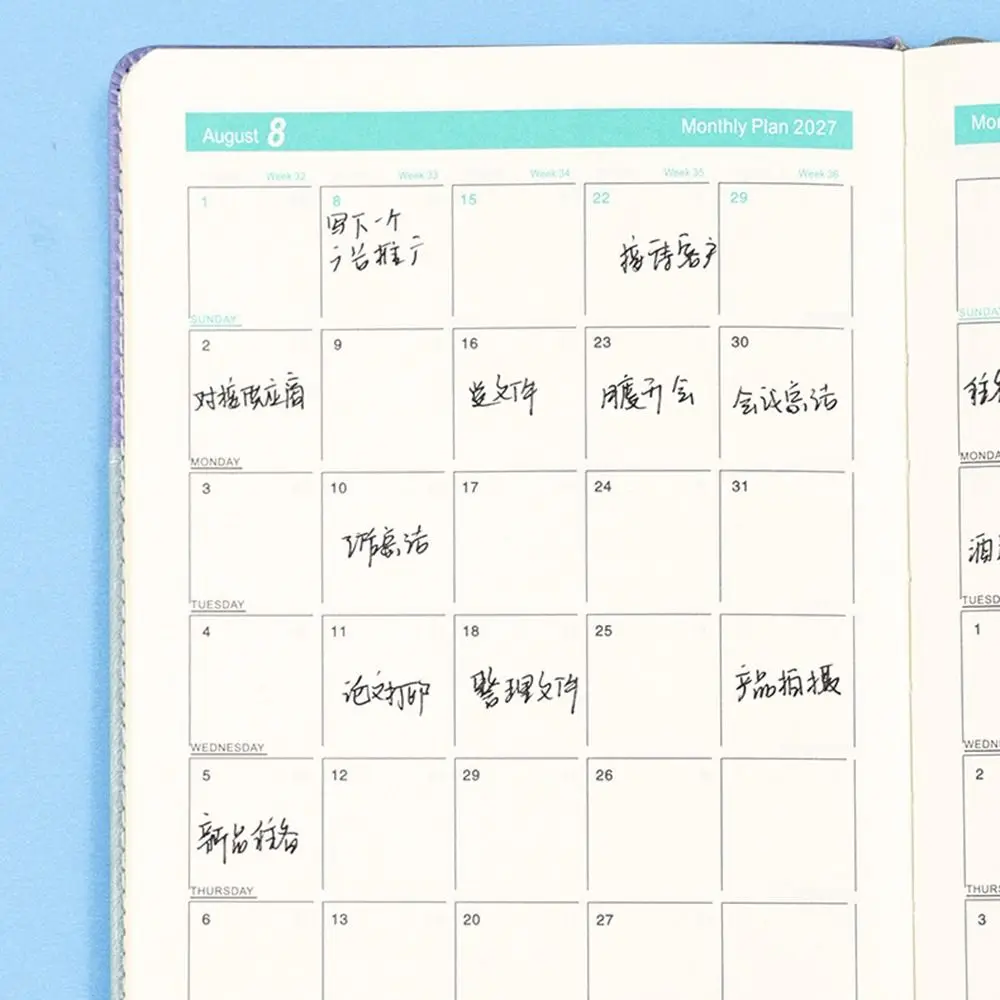 August 8
Monthly Plan 2027
Week 32
Week 33
Week 34
Week 35
Week 36
1
8
写下一个
广告推广
15
22
接待客户
29
SUNDAY
2
对接供应商
9
16
发文件
23
月度开会
30
会议总结
MONDAY
3
10
总结
17
24
31
TUESDAY
4
11
论文打印
18
整理文件
25
产品拍摄
WEDNESDAY
5
新品准备
12
29
26
THURSDAY
6
13
20
27
Mon
SUNDA
MONDA
酒
TUESD
1
WEDN
2
THURS
3